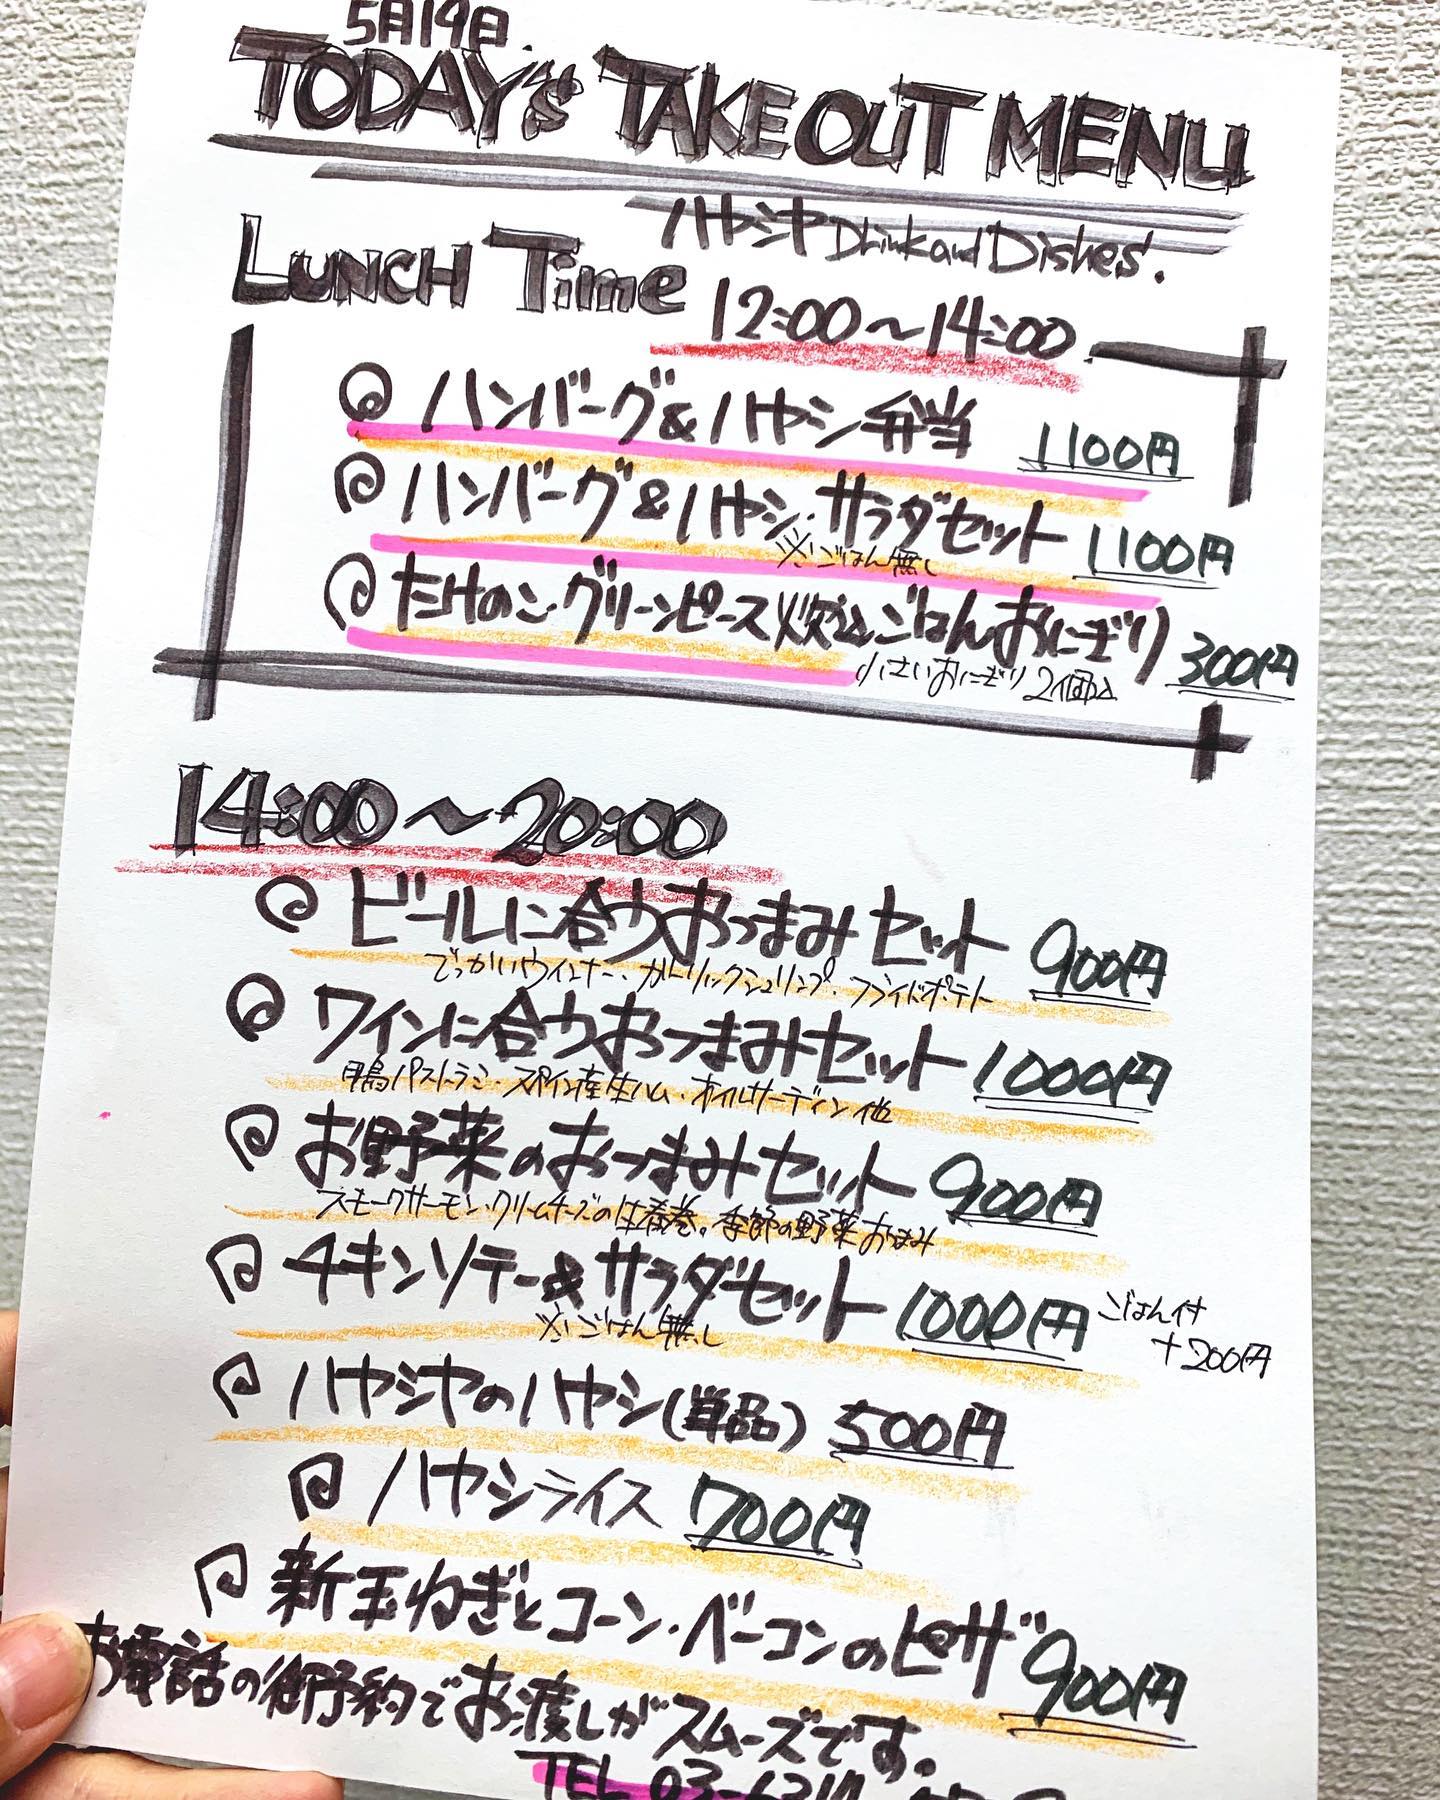 5月19日.
TODAY's TAKE OUT MENU
ハヤシヤ Drink and Dishes.
LUNCH Time 12:00〜14:00
ハンバーグ&ハヤシ弁当 1100円
ハンバーグ&ハヤシ・サラダセット 1100円
※ごはん無し
たけのこ・グリーンピース炊込ごはんおにぎり 300円
小さいおにぎり2個入
14:00〜20:00
ビールに合うおつまみセット 900円
でっかいウインナー・ガーリックシュリンプ・フライドポテト
ワインに合うおつまみセット 1000円
鴨パストラミ・スペイン産生ハム・オイルサーディン他
お野菜のおつまみセット 900円
スモークサーモン・クリームチーズの生春巻。季節の野菜おつまみ
チキンソテー&サラダセット 1000円 ごはん付
※ごはん無し +200円
ハヤシヤのハヤシ(単品) 500円
ハヤシライス 700円
新玉ねぎとコーン・ベーコンのピザ 900円
お電話の御予約でお渡しがスムーズです。
TEL 03-